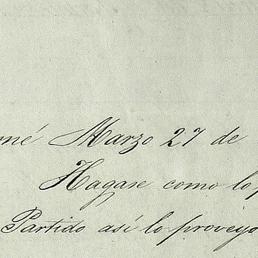 né Marzo 27 de
Hagase como lo p
Partido asi lo proveyo